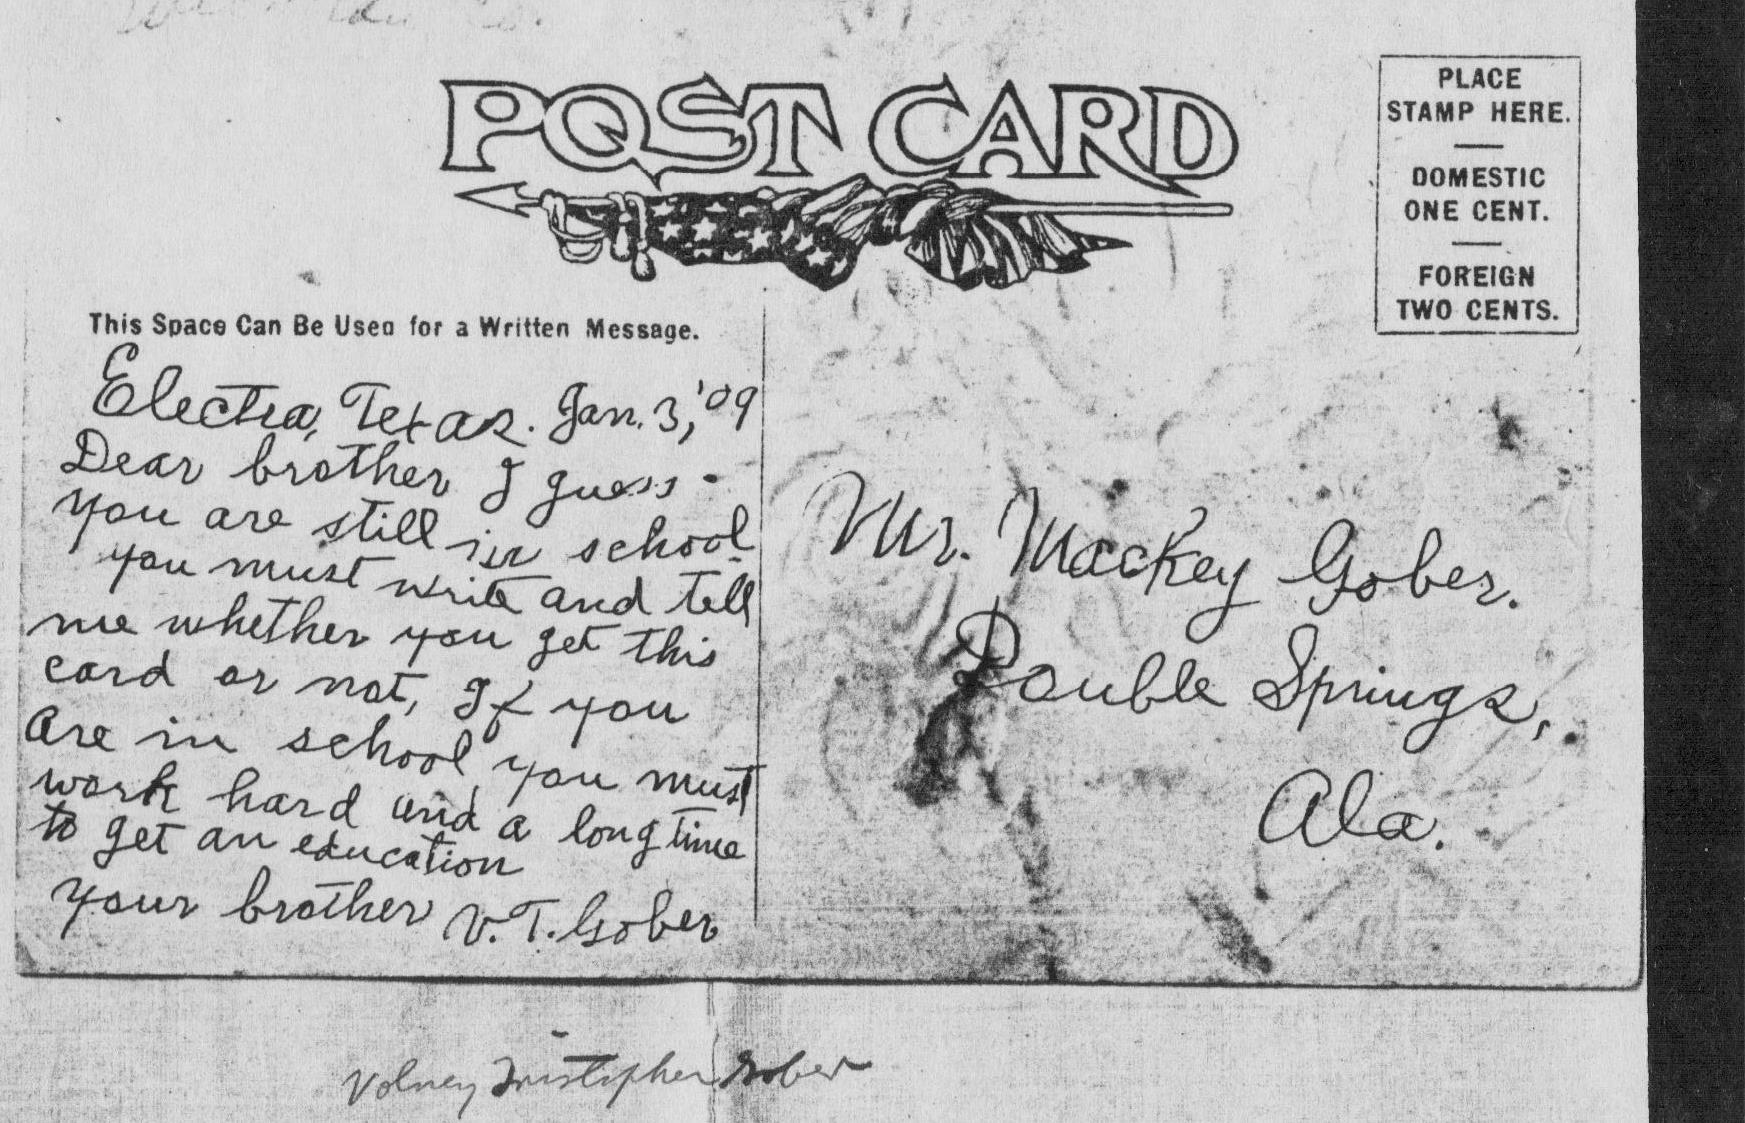 POST CARD
PLACE
STAMP HERE.
DOMESTIC
ONE CENT.
FOREIGN
TWO CENTS.
This Space Can Be Used for a Written Message.
Electra, Texas. Jan. 3, '09
Dear brother I guess
you are still in school.
you must write and tell
me whether you get this
card or not, If you
are in school you must
work hard and a long time
to get an education
your brother V.T. Gober
Mr. Mackey Gober.
Double Springs,
Ala.
Volney Gober